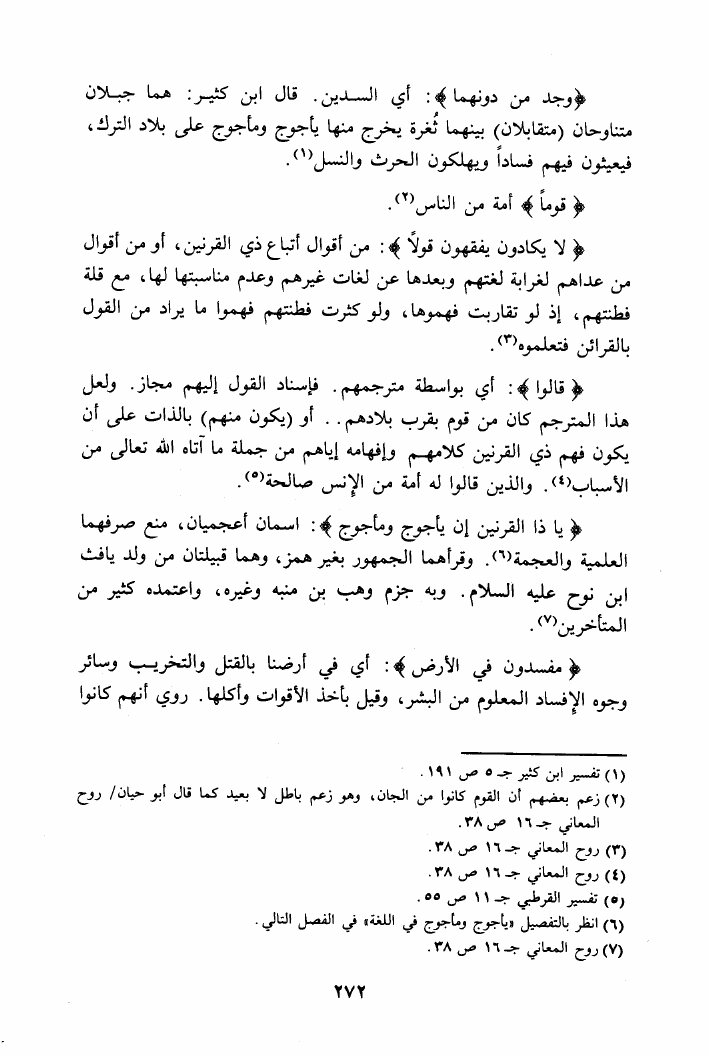 ﴿وجد من دونهما﴾: أي السدين. قال ابن كثير: هما جبلان
متناوحان (متقابلان) بينهما ثُغرة يخرج منها يأجوج ومأجوج على بلاد الترك،
فيعيثون فيهم فساداً ويهلكون الحرث والنسل(١).
﴿قوماً﴾ أمة من الناس(٢).
﴿لا يكادون يفقهون قولاً﴾: من أقوال أتباع ذي القرنين، أو من أقوال
من عداهم لغرابة لغتهم وبعدها عن لغات غيرهم وعدم مناسبتها لها، مع قلة
فطنتهم، إذ لو تقاربت فهموها، ولو كثرت فطنتهم فهموا ما يراد من القول
بالقرائن فتعلموه(٣).
﴿قالوا﴾: أي بواسطة مترجمهم. فإسناد القول إليهم مجاز. ولعل
هذا المترجم كان من قوم بقرب بلادهم.. أو (يكون منهم) بالذات على أن
يكون فهم ذي القرنين كلامهم وإفهامه إياهم من جملة ما آتاه الله تعالى من
الأسباب(٤). والذين قالوا له أمة من الإنس صالحة(٥).
﴿يا ذا القرنين إن يأجوج ومأجوج﴾: اسمان أعجميان، منع صرفهما
العلمية والعجمة(٦). وقرأهما الجمهور بغير همز، وهما قبيلتان من ولد يافث
ابن نوح عليه السلام. وبه جزم وهب بن منبه وغيره، واعتمده كثير من
المتأخرين(٧).
﴿مفسدون في الأرض﴾: أي في أرضنا بالقتل والتخريب وسائر
وجوه الإفساد المعلوم من البشر، وقيل بأخذ الأقوات وأكلها. روي أنهم كانوا
(١) تفسير ابن كثير جـ ٥ ص ١٩١.
(٢) زعم بعضهم أن القوم كانوا من الجان، وهو زعم باطل لا بعيد كما قال أبو حيان/ روح
المعاني جـ ١٦ ص ٣٨.
(٣) روح المعاني جـ ١٦ ص ٣٨.
(٤) روح المعاني جـ ١٦ ص ٣٨.
(٥) تفسير القرطبي جـ ١١ ص ٥٥.
(٦) انظر بالتفصيل «يأجوج ومأجوج في اللغة» في الفصل التالي.
(٧) روح المعاني جـ ١٦ ص ٣٨.
٢٧٢